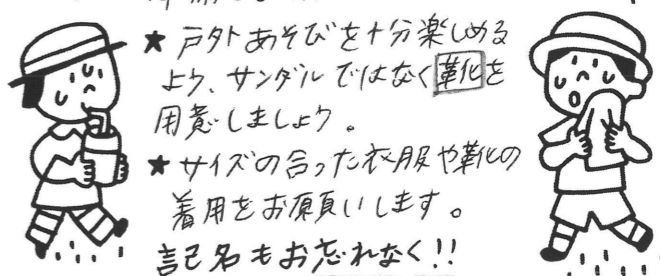 ★ 戸外あそびを十分楽しめる
よう、サンダルではなく靴を
用意しましょう。
★ サイズの合った衣服や靴の
着用をお願いします。
記名もお忘れなく!!